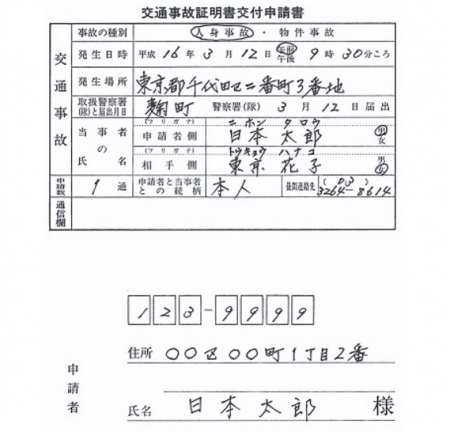 交通事故証明書交付申請書
交通事故
事故の種別 人身事故・物件事故
発生日時 平成16年3月12日 午前 午後 9時30分ころ
発生場所 東京都千代田区二番町3番地
取扱警察署(隊)と届出月日 麹町 警察署(隊) 3月12日届出
当事者の氏名
(フリガナ) ニホン タロウ
申請者側 日本 太郎 男 女
(フリガナ) トウキョウ ハナコ
相手側 東京 花子 男 女
申請数 1通 申請者と当事者との続柄 本人 昼間連絡先 (03) 3264-8614
通信欄
123-9999
申請者
住所 〇〇区〇〇町1丁目2番
氏名 日本 太郎 様